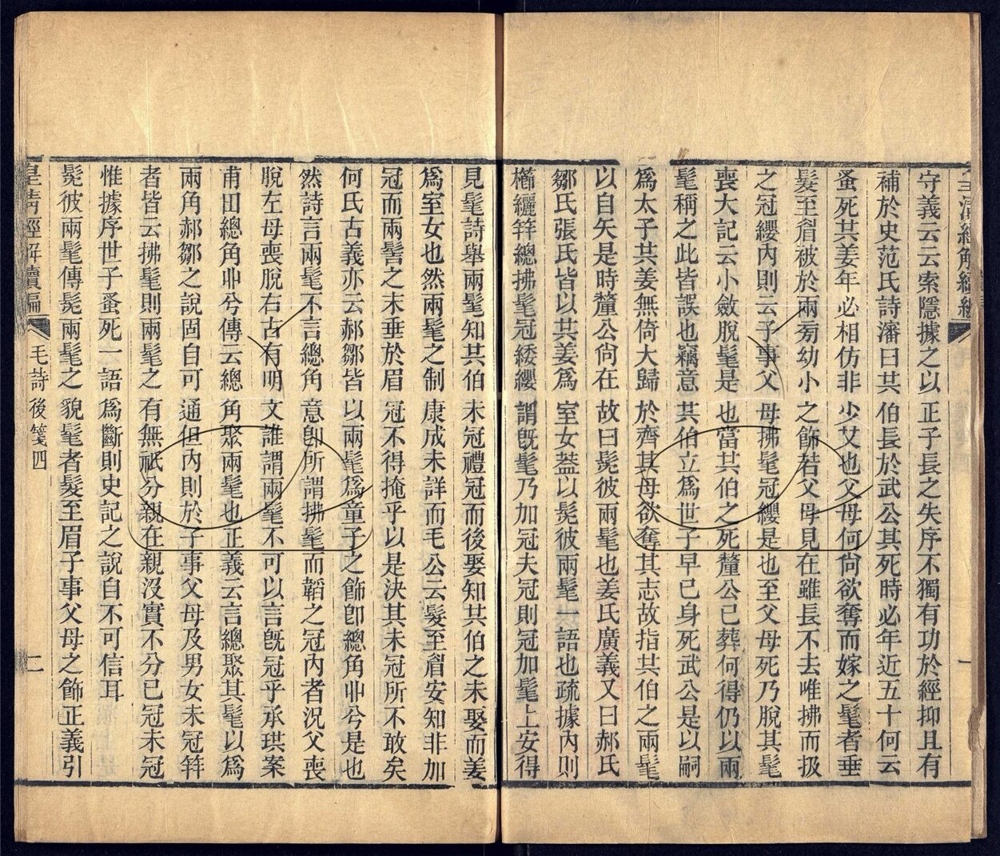 皇清經解續編
一
守義云云索隱據之以正子長之失序不獨有功於經抑且有
補於史范氏詩瀋曰共伯長於武公其死時必年近五十何云
蚤死共姜年必相仿非少艾也父母何尙欲奪而嫁之髦者垂
髮至眉被於兩旁幼小之飾若父母見在雖長不去唯拂而扱
之冠纓內則云子事父母拂髦冠纓是也至父母死乃脫其髦
喪大記云小斂脫髦是也當共伯之死釐公已葬何得仍以兩
髦稱之此皆誤也竊意共伯立爲世子早已身死武公是以嗣
爲太子共姜無倚大歸於齊其母欲奪其志故指共伯之兩髦
以自矢是時釐公尙在故曰髧彼兩髦也姜氏廣義又曰郝氏
鄒氏張氏皆以共姜爲室女葢以髧彼兩髦一語也疏據內則
櫛纚笄總拂髦冠緌纓謂旣髦乃加冠夫冠則冠加髦上安得
見髦詩舉兩髦知共伯未冠禮冠而後娶知共伯之未娶而姜
爲至女也然兩髦之制康成未詳而毛公云髮至眉安知非加
冠而兩髻之末垂於眉冠不得掩乎以是決其未冠所不敢矣
何氏古義亦云郝鄒皆以兩髦爲童子之飾卽總角丱兮是也
然詩言兩髦不言總角意卽所謂拂髦而韜之冠內者況父喪
脫左母喪脫右古有明文誰謂兩髦不可以言旣冠乎承珙案
甫田總角丱兮傳云總角聚兩髦也正義云言總聚其髦以爲
兩角郝鄒之說固自可通但內則於子事父母及男女未冠笄
者皆云拂髦則兩髦之有無祇分親在親沒實不分已冠未冠
惟據序世子蚤死一語爲斷則史記之說自不可信耳
髧彼兩髦傳髧兩髦之貌髦者髮至眉子事父母之飾正義引
皇清經解續編
毛詩後箋四
二